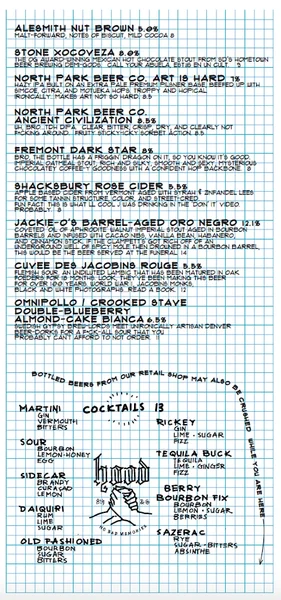 ALESMITH NUT BROWN 5.0%
MALT-FORWARD, NOTES OF BISCUIT, MILD COCOA 8
STONE XOCOVEZA 8.1%
THE OG AWARD-WINNING MEXICAN HOT CHOCOLATE STOUT FROM SD'S HOMETOWN
BEER BREWING DEMI-GODS. CALL YOUR ABUELA, EST@ EN UN CULT.
NORTH PARK BEER CO. ART IS HARD 7%
HAZY IPA BUILT ON AN EXTRA PALE PREMIUM PILSNER BASE, BEEFED UP WITH
SIMCOE, CITRA, AND MOTUEKA HOPS. TROPPY AND HOPICAL.
IRONICALLY...MAKES ART NOT SO HARD. 8.5
NORTH PARK BEER CO.
ANCIENT CIVILIZATION 8.5%
UH, BRO...TDH DIPA. CLEAR, BITTER, CRISP, DRY, AND CLEARLY NOT
F*CKING AROUND. FRUITY STICKY-ICKY SORBET ACTION. 8.5
FREMONT DARK STAR 8%
BRO, THE BOTTLE HAS A FRIGGIN' DRAGON ON IT, SO YOU KNOW IT'S GOOD.
IMPERIAL OATMEAL STOUT, RICH AND SILKY, SMOOTH AND SEXY, MYSTERIOUS
CHOCOLATEY COFFEE-Y GOODNESS WITH A CONFIDENT HOP BACKBONE. 8
SHACKSBURY ROSE CIDER 5.5%
APPLE BASED CIDER FROM VERMONT AGED WITH SYRAH & ZINFANDEL LEES
FOR SOME TANNIN STRUCTURE, COLOR, AND STREET-CRED.
IN FACT THIS IS WHAT LL COOL J WAS DRINKING IN THE "DOIN' IT" VIDEO
PROBABLY. 8
JACKIE-O'S BARREL-AGED ORO NEGRO 12.1%
COVETED OIL OF APHRODITE WALNUT IMPERIAL STOUT AGED IN BOURBON
BARRELS AND INFUSED WITH CACAO NIBS, VANILLA BEAN, HABANERO,
AND CINNAMON STICK. IF THE CLAMPETT'S GOT RICH OFF OF AN
UNDERGROUND WELL OF SPICY MOLE THEN DROWNED IN A BOURBON BARREL,
THIS WOULD BE THE BEER SERVED AT THE FUNERAL. 14
CUVEE DES JACOBINS ROUGE 5.5%
FLEMISH SOUR. AN UNDILUTED LAMBIC THAT HAS BEEN MATURED IN OAK
FOEDERS FOR 18 MONTHS. LOOK, THEY'VE BEEN MAKING THIS BEER
FOR OVER 100 YEARS. WORLD WAR I, JACOBINS MONKS,
BLACK AND WHITE PHOTOGRAPHS. READ A BOOK. 12
OMNIPOLLO / CROOKED STAVE
DOUBLE-BLUEBERRY
ALMOND-CAKE BIANCA 6.5%
SWEDISH GYPSY BREW-LORDS MEET UNIRONICALLY ARTISAN DENVER
BEER-DORKS FOR A F*CK-ALL SOUR THAT YOU
PROBABLY CAN'T AFFORD TO NOT ORDER.
BOTTLED BEERS FROM OUR RETAIL SHOP MAY ALSO BE CRUSHED WHILE YOU ARE HERE
COCKTAILS 13
MARTINI
GIN
VERMOUTH
BITTERS
SOUR
BOURBON
LEMON-HONEY
EGG
SIDECAR
BRANDY
CURACAO
LEMON
DAIQUIRI
RUM
LIME
SUGAR
OLD FASHIONED
BOURBON
SUGAR
BITTERS
hood
NO BAD MEMORIES
RICKEY
GIN
LIME - SUGAR
FIZZ
TEQUILA BUCK
TEQUILA
LIME - GINGER
FIZZ
BERRY
BOURBON FIX
BOURBON
LEMON - SUGAR
BERRIES
SAZERAC
RYE
SUGAR - BITTERS
ABSINTHE